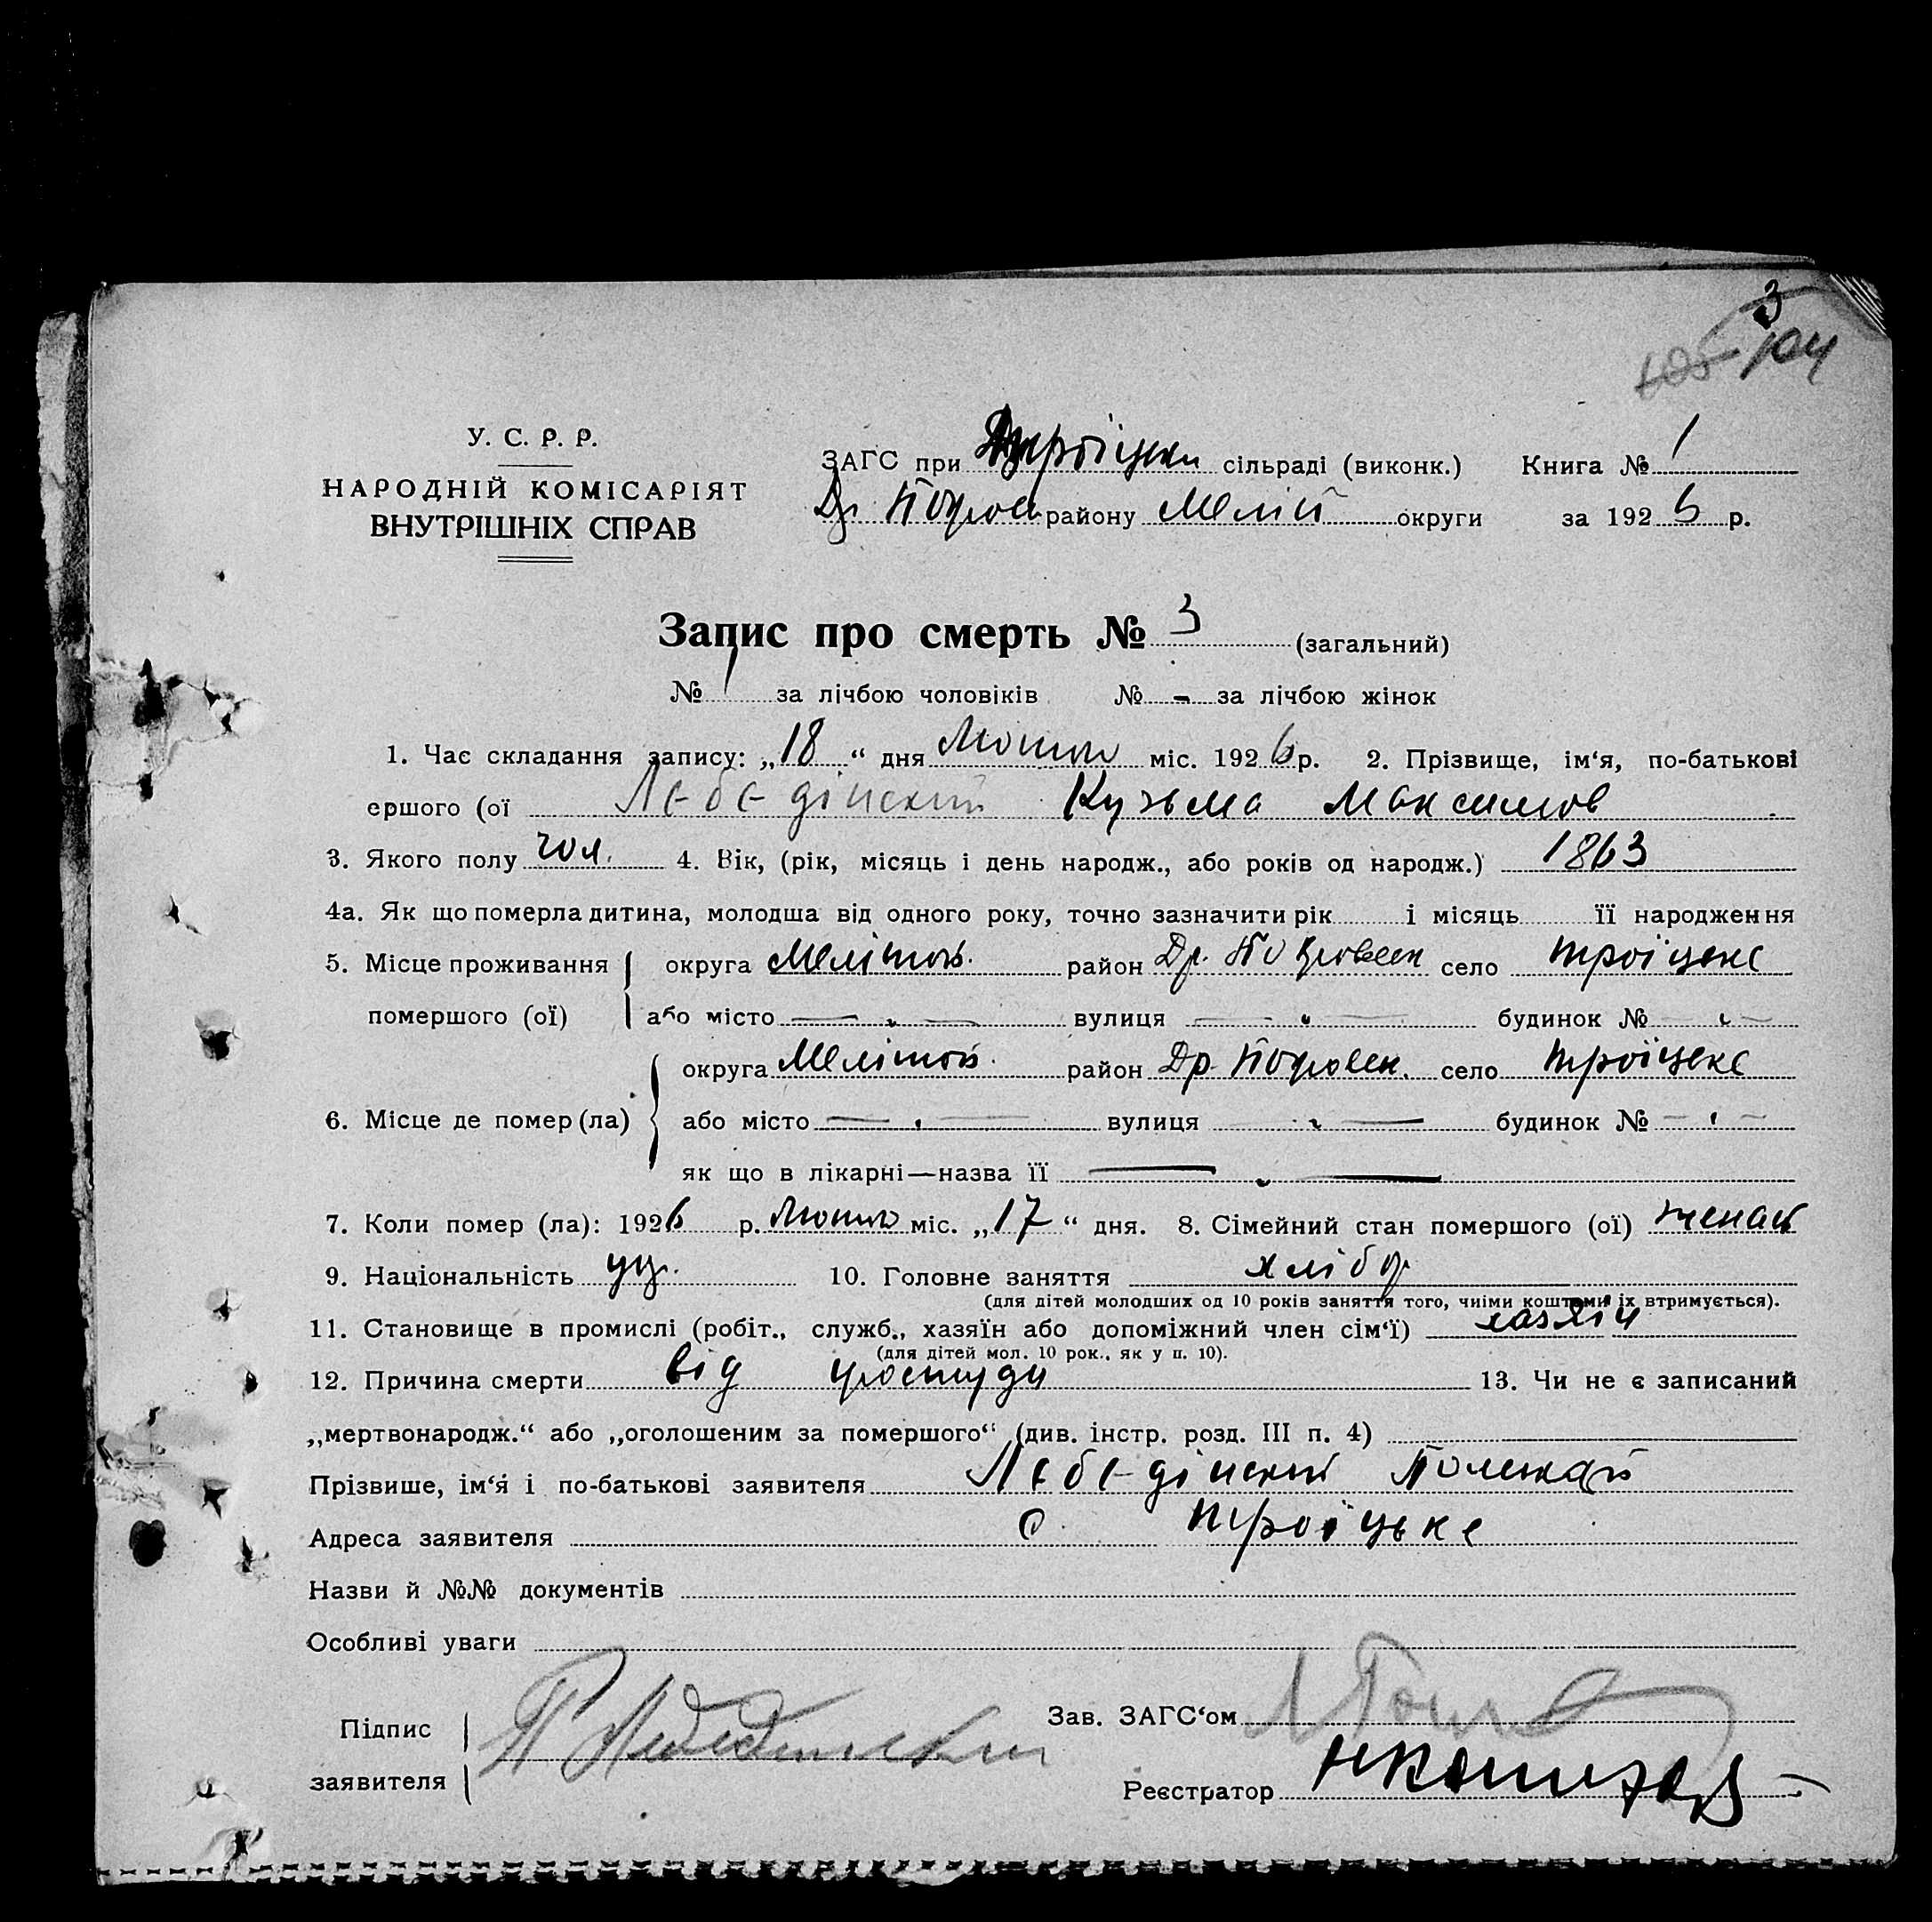 3
105 104
У. С. Р. Р.
НАРОДНІЙ КОМІСАРІЯТ
ВНУТРІШНІХ СПРАВ
ЗАГС при Троїцьки сільраді (виконк.) Книга № 1
Др Покров району Меліт округи за 1926 р.
Запис про смерть № 3 (загальний)
№ 1 за лічбою чоловіків № - за лічбою жінок
1. Час складання запису: „18“ дня Лютого міс. 1926 р. 2. Прізвище, ім‘я, по-батькові
ершого (ої Лебедінский Кузьма Максимов
3. Якого полу чол. 4. Вік, (рік, місяць і день народж., або років од народж.) 1863
4а. Як що померла дитина, молодша від одного року, точно зазначити рік і місяць її народження
5. Місце проживання округа Мелітоп. район Др. Покровськ село Троїцьке
помершого (ої) або місто — „ — вулиця — „ — будинок № — „ —
6. Місце де помер (ла) округа Мелітоп. район Др. Покровськ. село Троїцьке
або місто — „ — вулиця „ — будинок № — „ —
як що в лікарні—назва її — „ —
7. Коли помер (ла): 1926 р. Лютого міс. „17“ дня. 8. Сімейний стан помершого (ої) женат
9. Національність укр. 10. Головне заняття хлібор
(для дітей молодших од 10 років заняття того, чиїми коштами їх втримується).
11. Становище в промислі (робіт., служб., хазяїн або допоміжний член сім‘ї) хазяїн
(для дітей мол. 10 рок., як у п. 10).
12. Причина смерти від простуди 13. Чи не є записаний
„мертвонародж.“ або „оголошеним за помершого“ (див. інстр. розд. III п. 4)
Прізвище, ім‘я і по-батькові заявителя Лебедінский
Адреса заявителя с. Троїцьке
Назви й №№ документів
Особливі уваги
Підпис заявителя П Лебединский
Зав. ЗАГС‘ом
Реєстратор